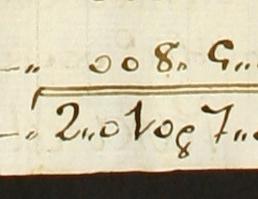 –„ 008„ 5„
–„ 2„01087„